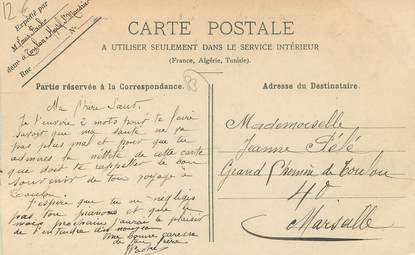 12 €
Expédié par
M
demt à Toulon
Rue
N°
CARTE POSTALE
A UTILISER SEULEMENT DANS LE SERVICE INTÉRIEUR
(France, Algérie, Tunisie).
Partie réservée à la Correspondance.
Adresse du Destinataire.
83
Ma
Je t'envoie 2 mots pour te faire
savoir que ma santé ne va
pas plus mal et pour que tu
admires la netteté de cette carte
qui doit te rappeler le bon
souvenir de ton voyage à
Toulon.
J'espère que tu ne négliges
pas ton piano et que le
mois prochain j'aurai le plaisir
de t'entendre de nouveau
Une bonne caresse
de ton frère
Mademoiselle
Jeanne
Grand Chemin de Toulon
40
Marseille